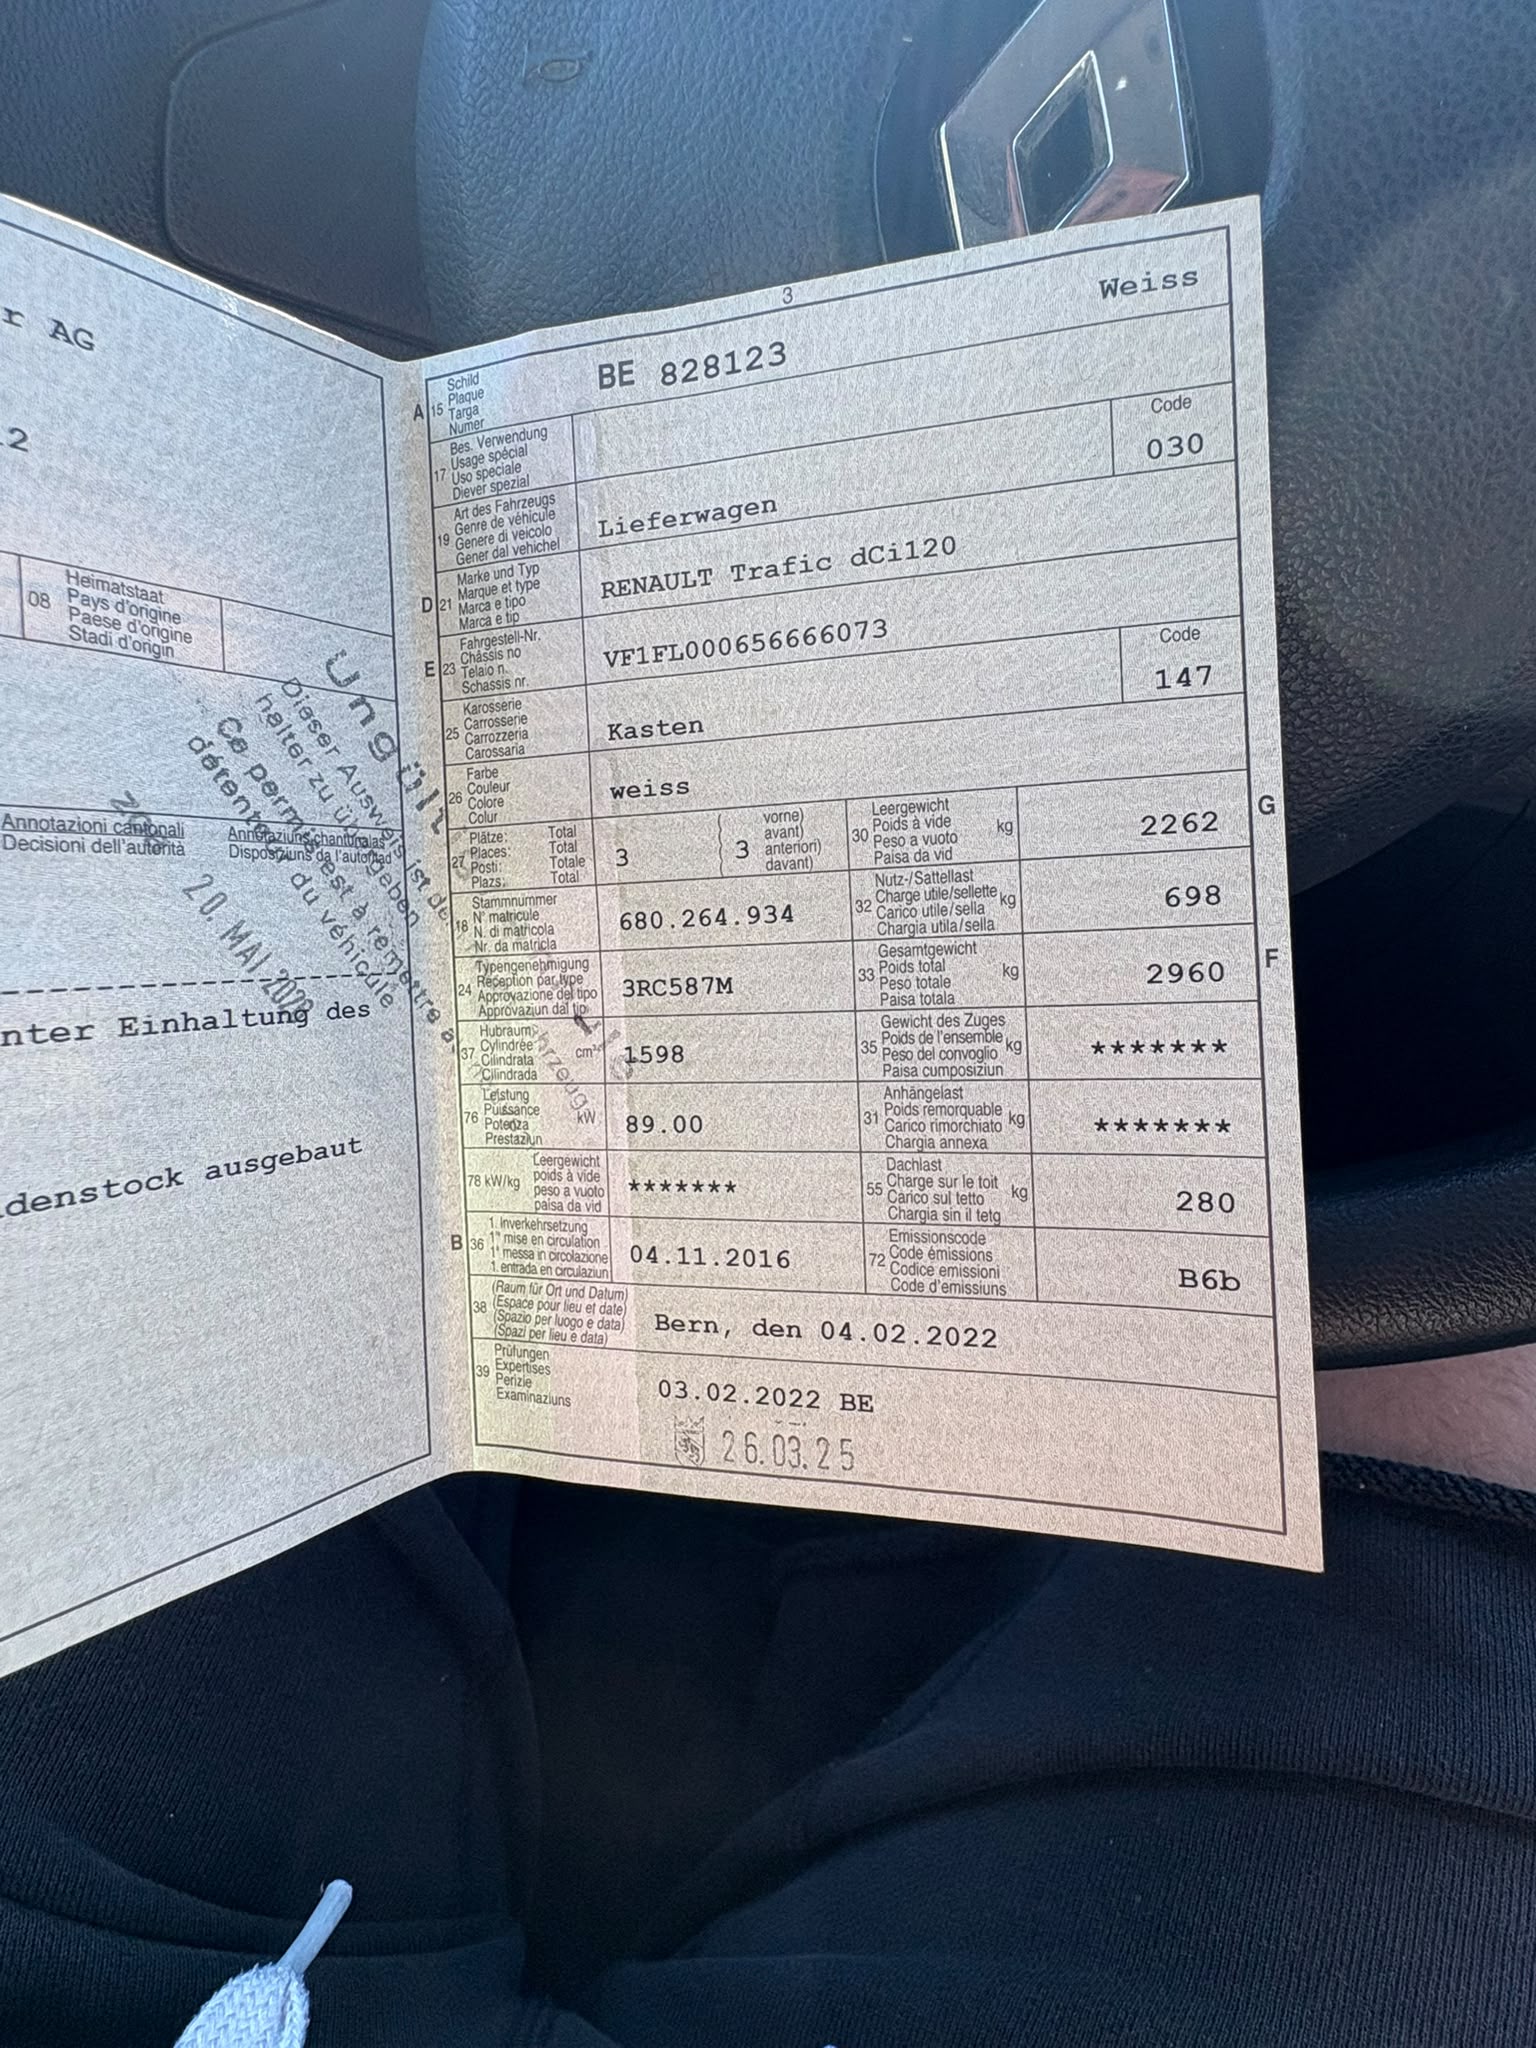 r AG
2
08 Heimatstaat
Pays d'origine
Paese d'origine
Stadi d'origin
Ungült
Dieser Ausweis ist de
halter zu übergeben
Ce permis est à remettre a
détenteur du véhicule
20. MAI 202
Annotazioni cantonali
Decisioni dell'autorità
Annotaziuns chantunalas
Disposiziuns da l'autoritad
nter Einhaltung des
denstock ausgebaut
3
Weiss
A 15 Schild
Plaque
Targa
Numer
BE 828123
17 Bes. Verwendung
Usage spécial
Uso speciale
Diever spezial
Code
030
19 Art des Fahrzeugs
Genre de véhicule
Genere di veicolo
Gener dal vehichel
Lieferwagen
D 21 Marke und Typ
Marque et type
Marca e tipo
Marca e tip
RENAULT Trafic dCi120
E 23 Fahrgestell-Nr.
Châssis no
Telaio n.
Schassis nr.
VF1FL000656666073
Code
147
25 Karosserie
Carrosserie
Carrozzeria
Carossaria
Kasten
26 Farbe
Couleur
Colore
Colur
weiss
27 Plätze: Total
Places: Total
Posti: Totale
Plazs: Total
3
3 vorne)
avant)
anteriori)
davant)
30 Leergewicht
Poids à vide
Peso a vuoto
Paisa da vid
kg
2262
G
18 Stammnummer
N° matricule
N. di matricola
Nr. da matricla
680.264.934
32 Nutz-/Sattellast
Charge utile/sellette
Carico utile/sella
Chargia utila/sella
kg
698
24 Typengenehmigung
Réception par type
Approvazione del tipo
Approvaziun dal tip
3RC587M
33 Gesamtgewicht
Poids total
Peso totale
Paisa totala
kg
2960
F
37 Hubraum
Cylindrée
Cilindrata
Cilindrada
cm³
1598
35 Gewicht des Zuges
Poids de l'ensemble
Peso del convoglio
Paisa cumposiziun
kg
*******
76 Leistung
Puissance
Potenza
Prestaziun
kW
89.00
31 Anhängelast
Poids remorquable
Carico rimorchiato
Chargia annexa
kg
*******
78 kW/kg Leergewicht
poids à vide
peso a vuoto
paisa da vid
*******
55 Dachlast
Charge sur le toit
Carico sul tetto
Chargia sin il tetg
kg
280
B 36 1. Inverkehrsetzung
1re mise en circulation
1a messa in circolazione
1. entrada en circulaziun
04.11.2016
72 Emissionscode
Code émissions
Codice emissioni
Code d'emissiuns
B6b
38 (Raum für Ort und Datum)
(Espace pour lieu et date)
(Spazio per luogo e data)
(Spazi per lieu e data)
Bern, den 04.02.2022
39 Prüfungen
Expertises
Perizie
Examinaziuns
03.02.2022 BE
26.03.25